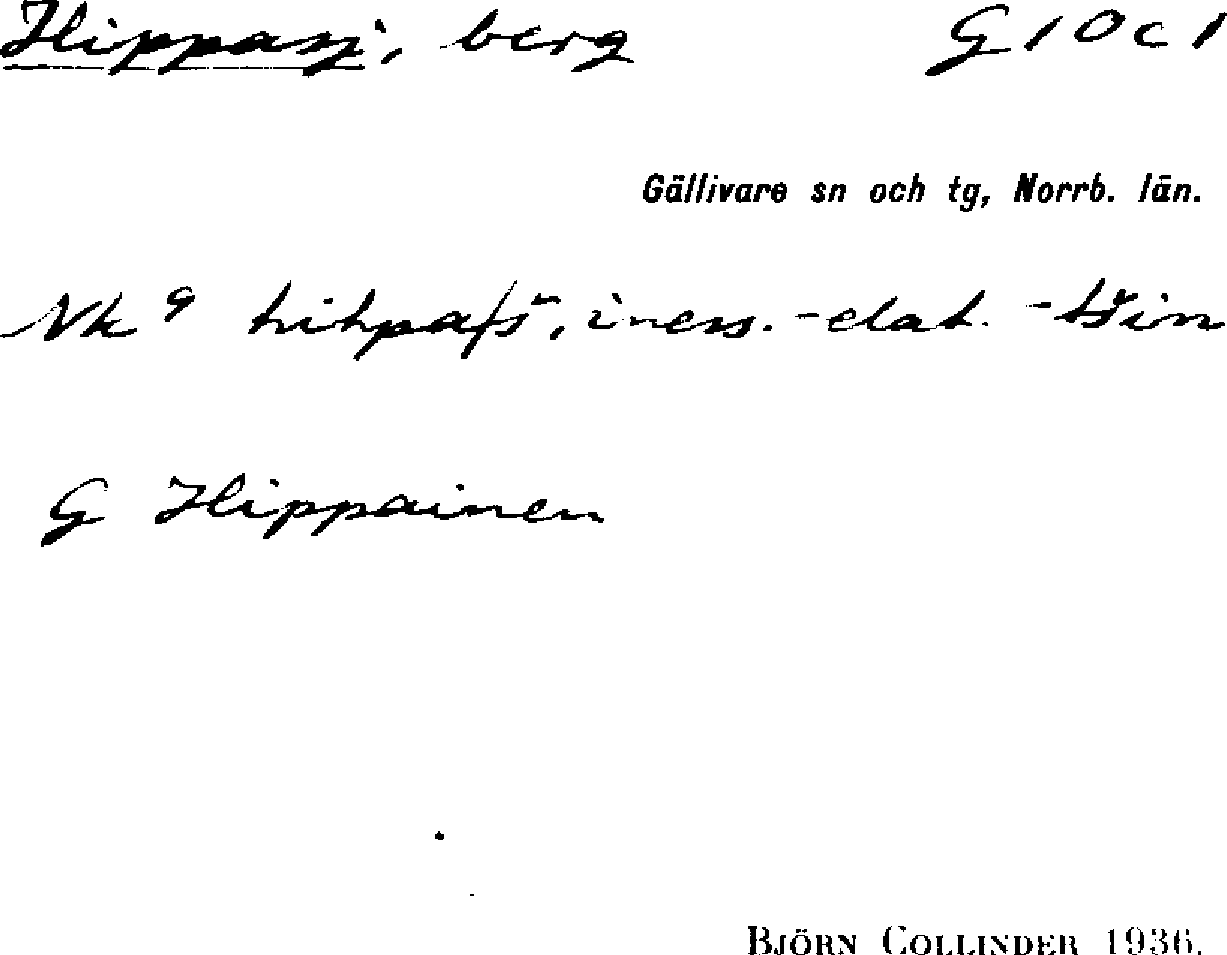 Hippasj, berg G 10 c 1
Gällivare sn och tg, Norrb. län.
Nk 9 hihpaʃš, iness.-elat. -tšin
G Hippainen
BJÖRN COLLINDER 1936.